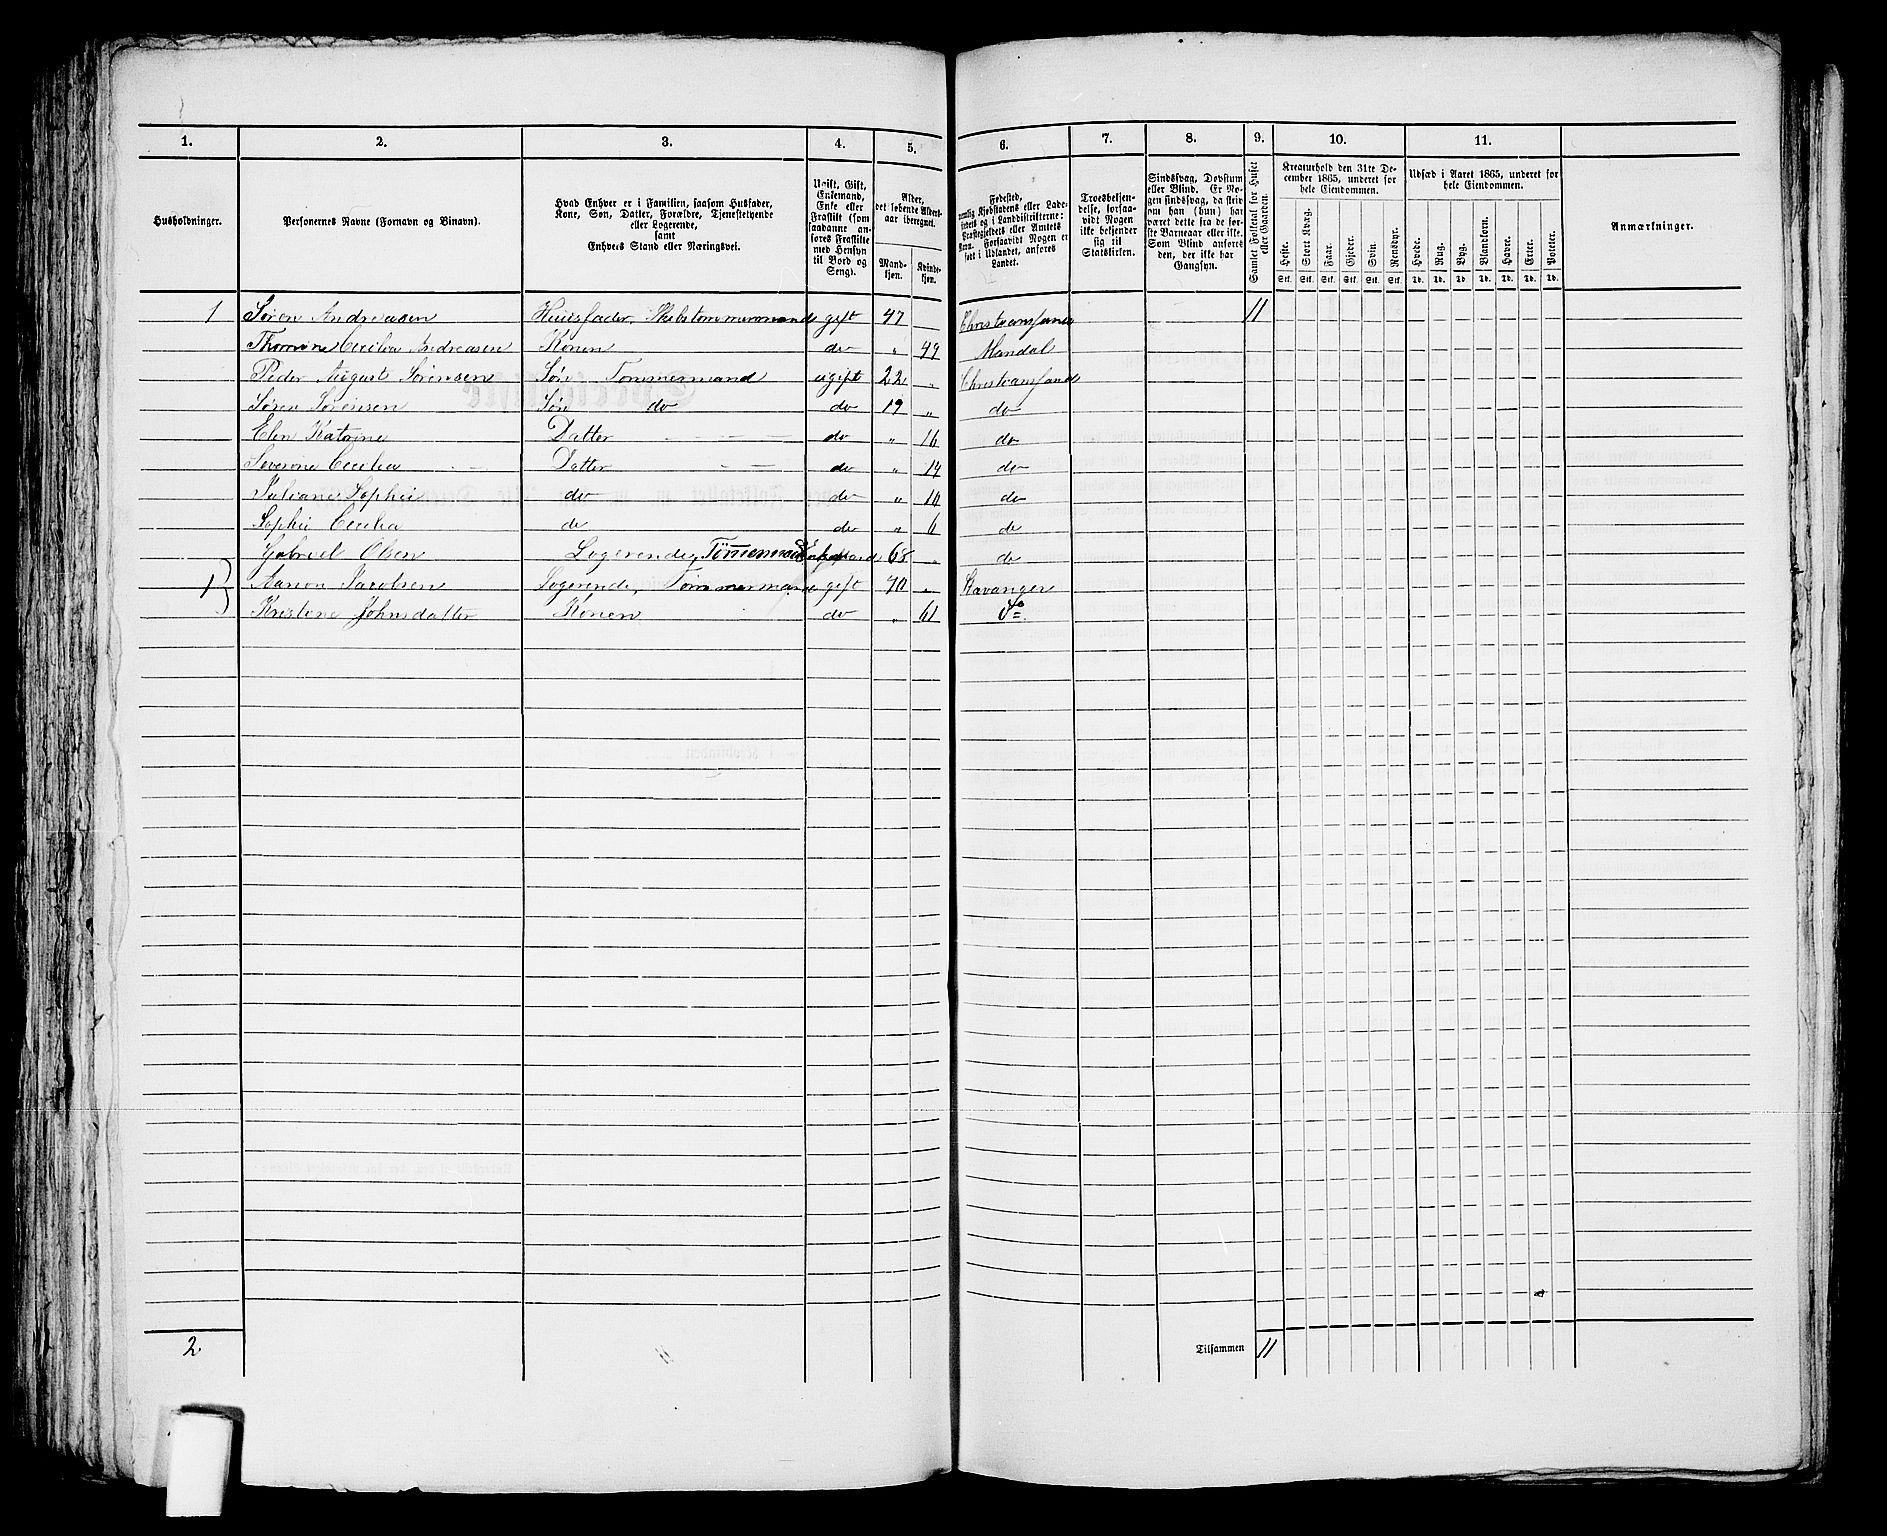 1. 2. 3. 4. 5. 6. 7. 8. 9. 10. 11.
Husholdninger.
Personernes Navne (Fornavn og Binavn).
Hvad Enhver er i Familien, saasom Husfader, Kone, Søn, Datter, Forældre, Tjenestetyende eller Logerende, samt Enhvers Stand eller Næringsvei.
Ugift, Gift, Enkemand, Enke eller Fraskilt (som saadanne anføres Fraskilte med Hensyn til Bord og Seng).
Alder, det løbende Aldersaar iberegnet.
Mandkjøn. Kvindekjøn.
Fødested, nemlig Kjøbstadens eller Ladestedets eller i Landdistrikterne: Præstegjeldets eller Amtets Navn. Forsaavidt Nogen er født i Udlandet, anføres Landet.
Troesbekjendelse, forsaavidt Nogen ikke bekjender sig til Statskirken.
Sindssvag, Døvstum eller Blind. Er Nogen sindssvag, da skrives om han (hun) har været dette fra de første Barneaar eller ikke. Som Blind anføres den, der ikke har Gangsyn.
Samlet Folketal for Huset eller Gaarden.
Kreaturhold den 31te December 1865, underet for hele Eiendommen.
Heste. Stort Kvæg. Faar. Gjeder. Svin. Rensdyr.
Stk. Stk. Stk. Stk. Stk. Stk.
Udsæd i Aaret 1865, underet for hele Eiendommen.
Hvede. Rug. Byg. Blandkorn. Havre. Erter. Poteter.
Td. Td. Td. Td. Td. Td. Td.
Anmærkninger.
1 Søren Andreasen Huusfader, Skibstømmermand gift 47 Christiansand 11
Thomine Cecilia Andreasen Konen do " 49 Mandal
Peder August Sørensen Søn Tømmermand ugift 22 " Christiansand
Søren Sørensen Søn do do 19 " do
Elen Katrine Datter do " 16 do
Severine Cecilia Datter do " 14 do
Juliane Sophie do do " 10 do
Sophie Cecilia de do " 6 de
Gabriel Olsen Logerende, Tömmermand Enkemand 68 " de
1 Aanon Jacobsen Logerende, Tømmermand gift 70 " Stavanger
Kristine Johnsdatter Konen do " 61 do
2 Tilsammen 11